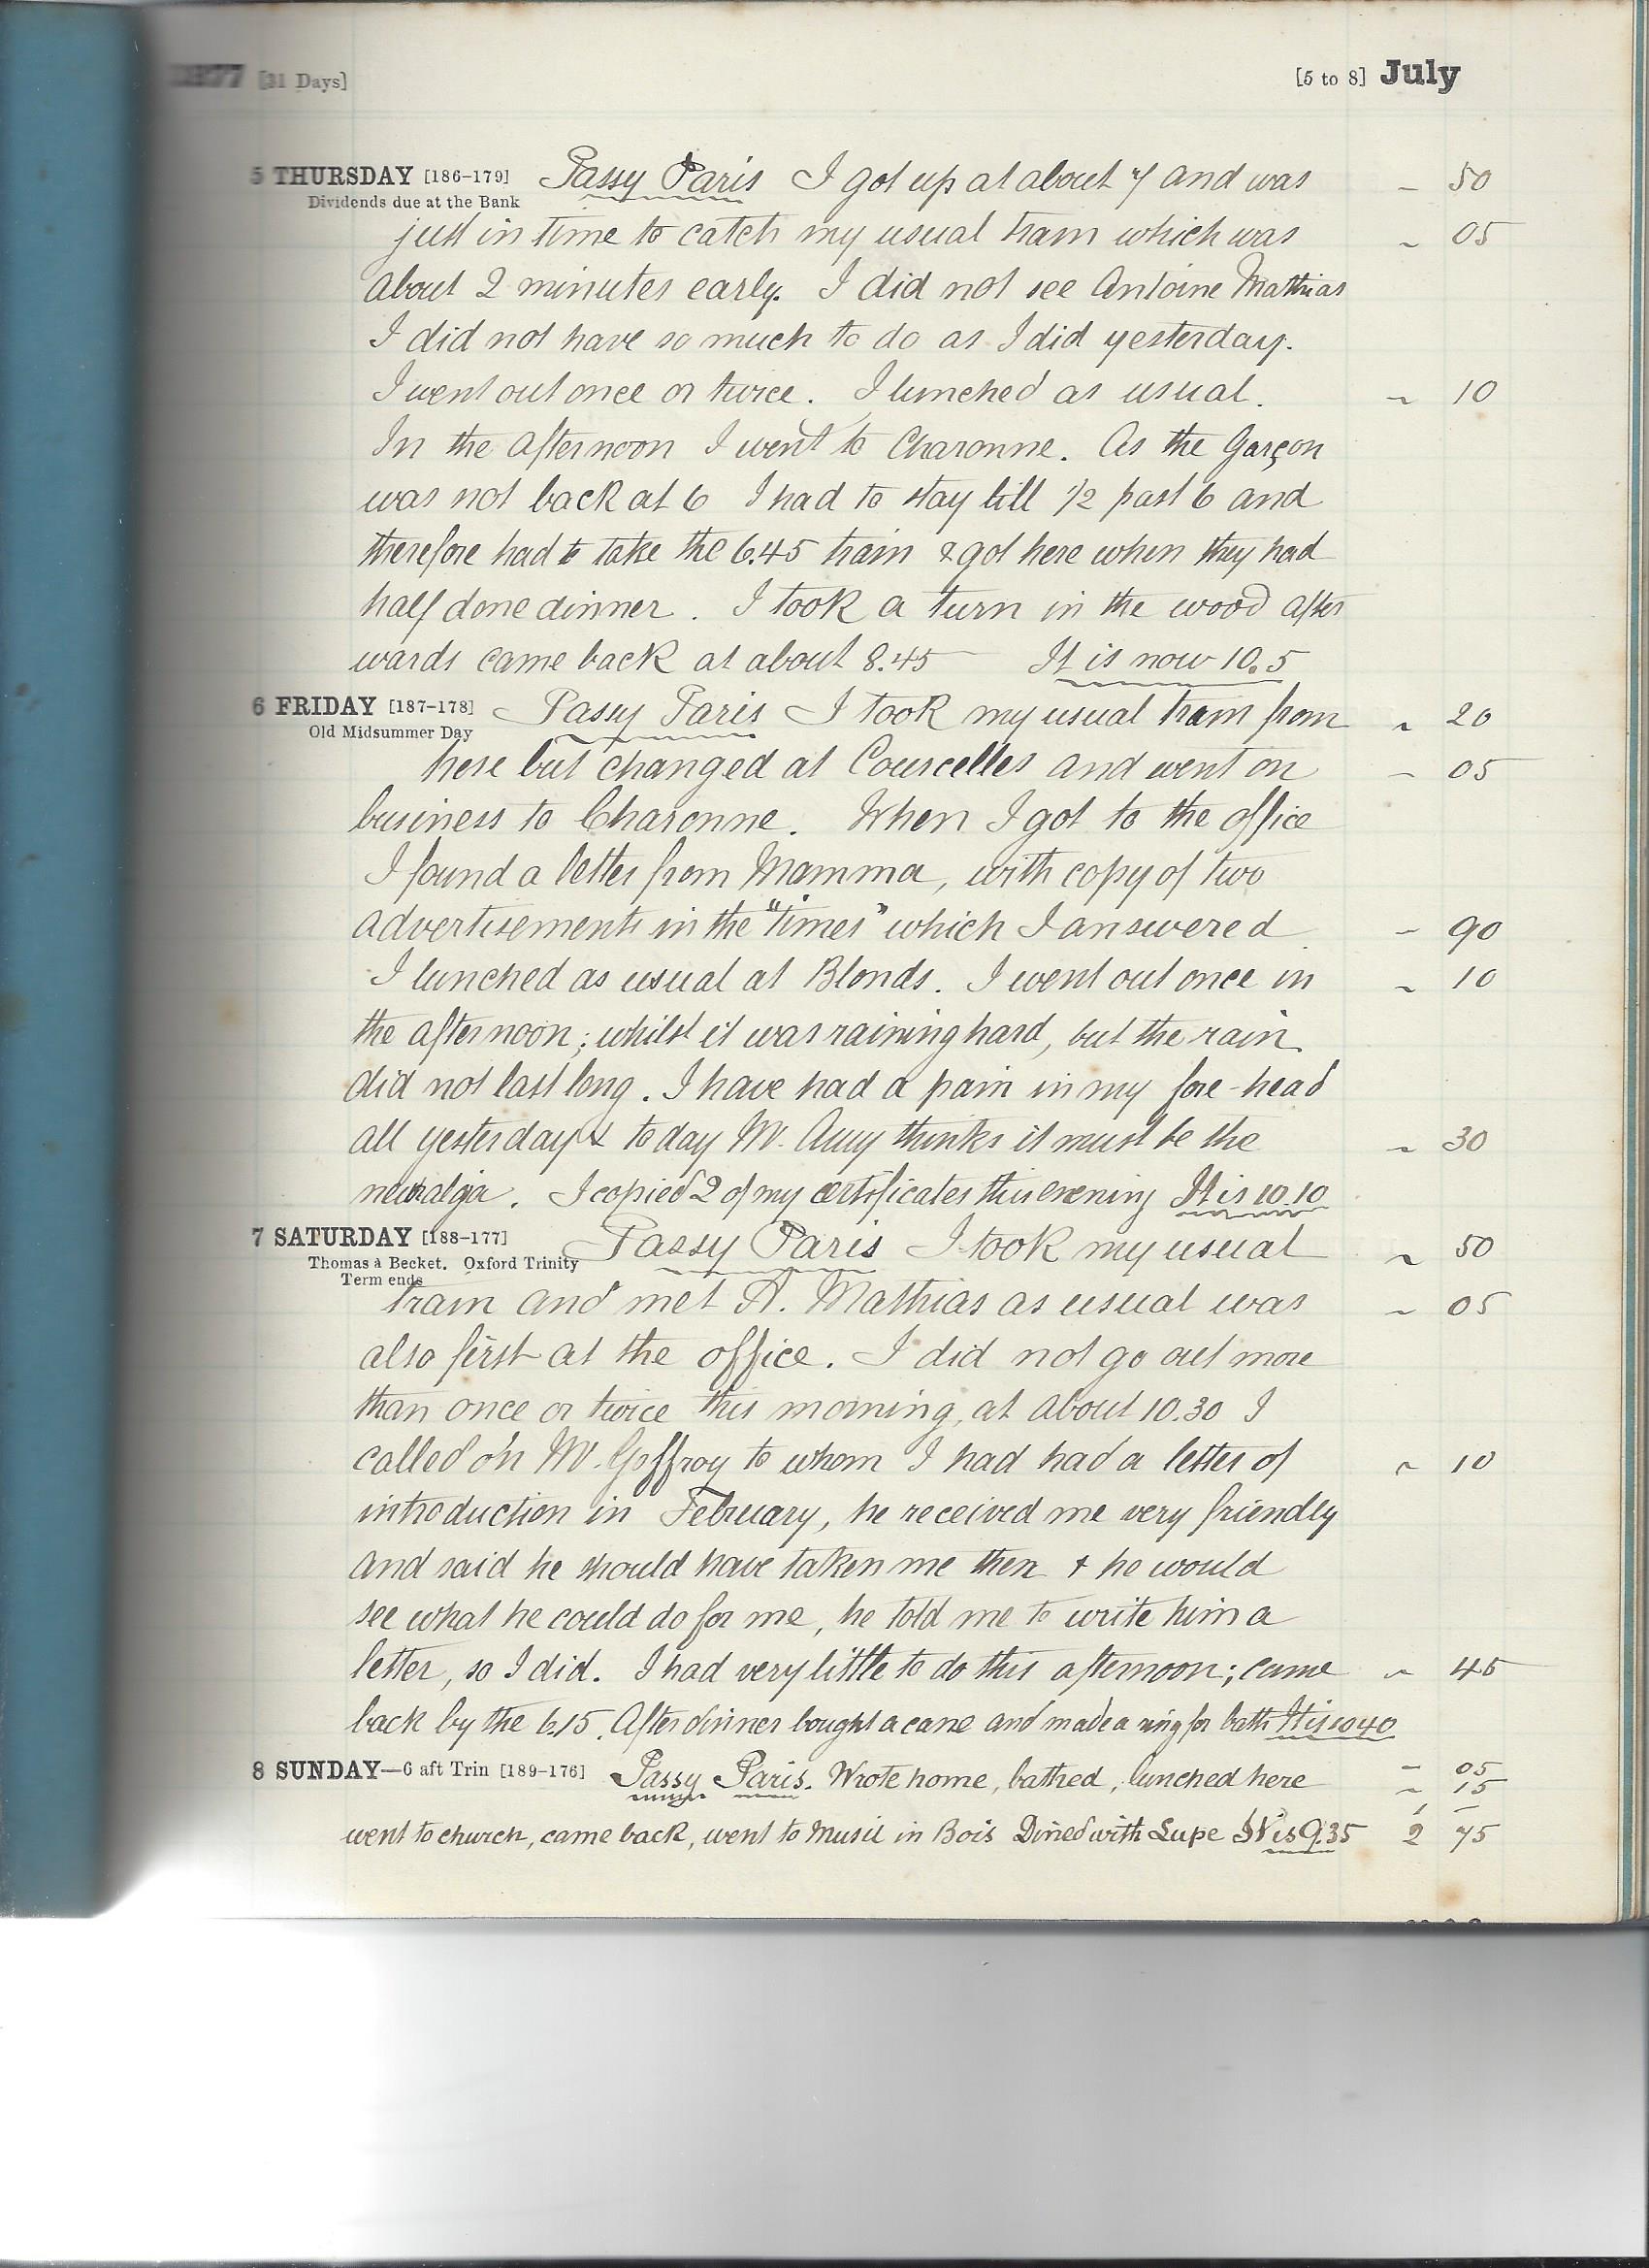 1877 [31 Days] [5 to 8] July
5 THURSDAY [186–179] Passy Paris I got up at about 7 and was – 50
Dividends due at the Bank
just in time to catch my usual train which was ~ 05
about 2 minutes early. I did not see Antoine Mathias
I did not have so much to do as I did yesterday.
I went out once or twice. I lunched as usual. ~ 10
In the afternoon I went to Charonne. As the Garçon
was not back at 6 I had to stay till 1/2 past 6 and
therefore had to take the 6.45 train & got here when they had
half done dinner. I took a turn in the wood after
wards came back at about 8.45 It is now 10.5
6 FRIDAY [187–178] Passy Paris I took my usual train from ~ 20
Old Midsummer Day
here but changed at Courcelles and went on – 05
business to Charonne. When I got to the office
I found a letter from Mamma, with copy of two
advertisements in the "Times" which I answered – 90
I lunched as usual at Blonds. I went out once in ~ 10
the afternoon; whilst it was raining hard, but the rain
did not last long. I have had a pain in my fore-head
all yesterday & to day M. Amy thinks it must be the ~ 30
neuralgia. I copied 2 of my certificates this evening It is 10.10
7 SATURDAY [188–177] Passy Paris I took my usual ~ 50
Thomas à Becket. Oxford Trinity
Term ends
train and met A. Mathias as usual was ~ 05
also first at the office. I did not go out more
than once or twice this morning, at about 10.30 I
called on M. Goffroy to whom I had had a letter of ~ 10
introduction in February, he received me very friendly
and said he should have taken me then & he would
see what he could do for me, he told me to write him a
letter, so I did. I had very little to do this afternoon; came ~ 45
back by the 6.15. After dinner bought a cane and made a ring for bath It is 10 40
8 SUNDAY—6 aft Trin [189–176] Passy Paris. Wrote home, bathed, lunched here – 05
~ 15
1 –
went to church, came back, went to Music in Bois Dined with Lupe It is 9.35 2 75